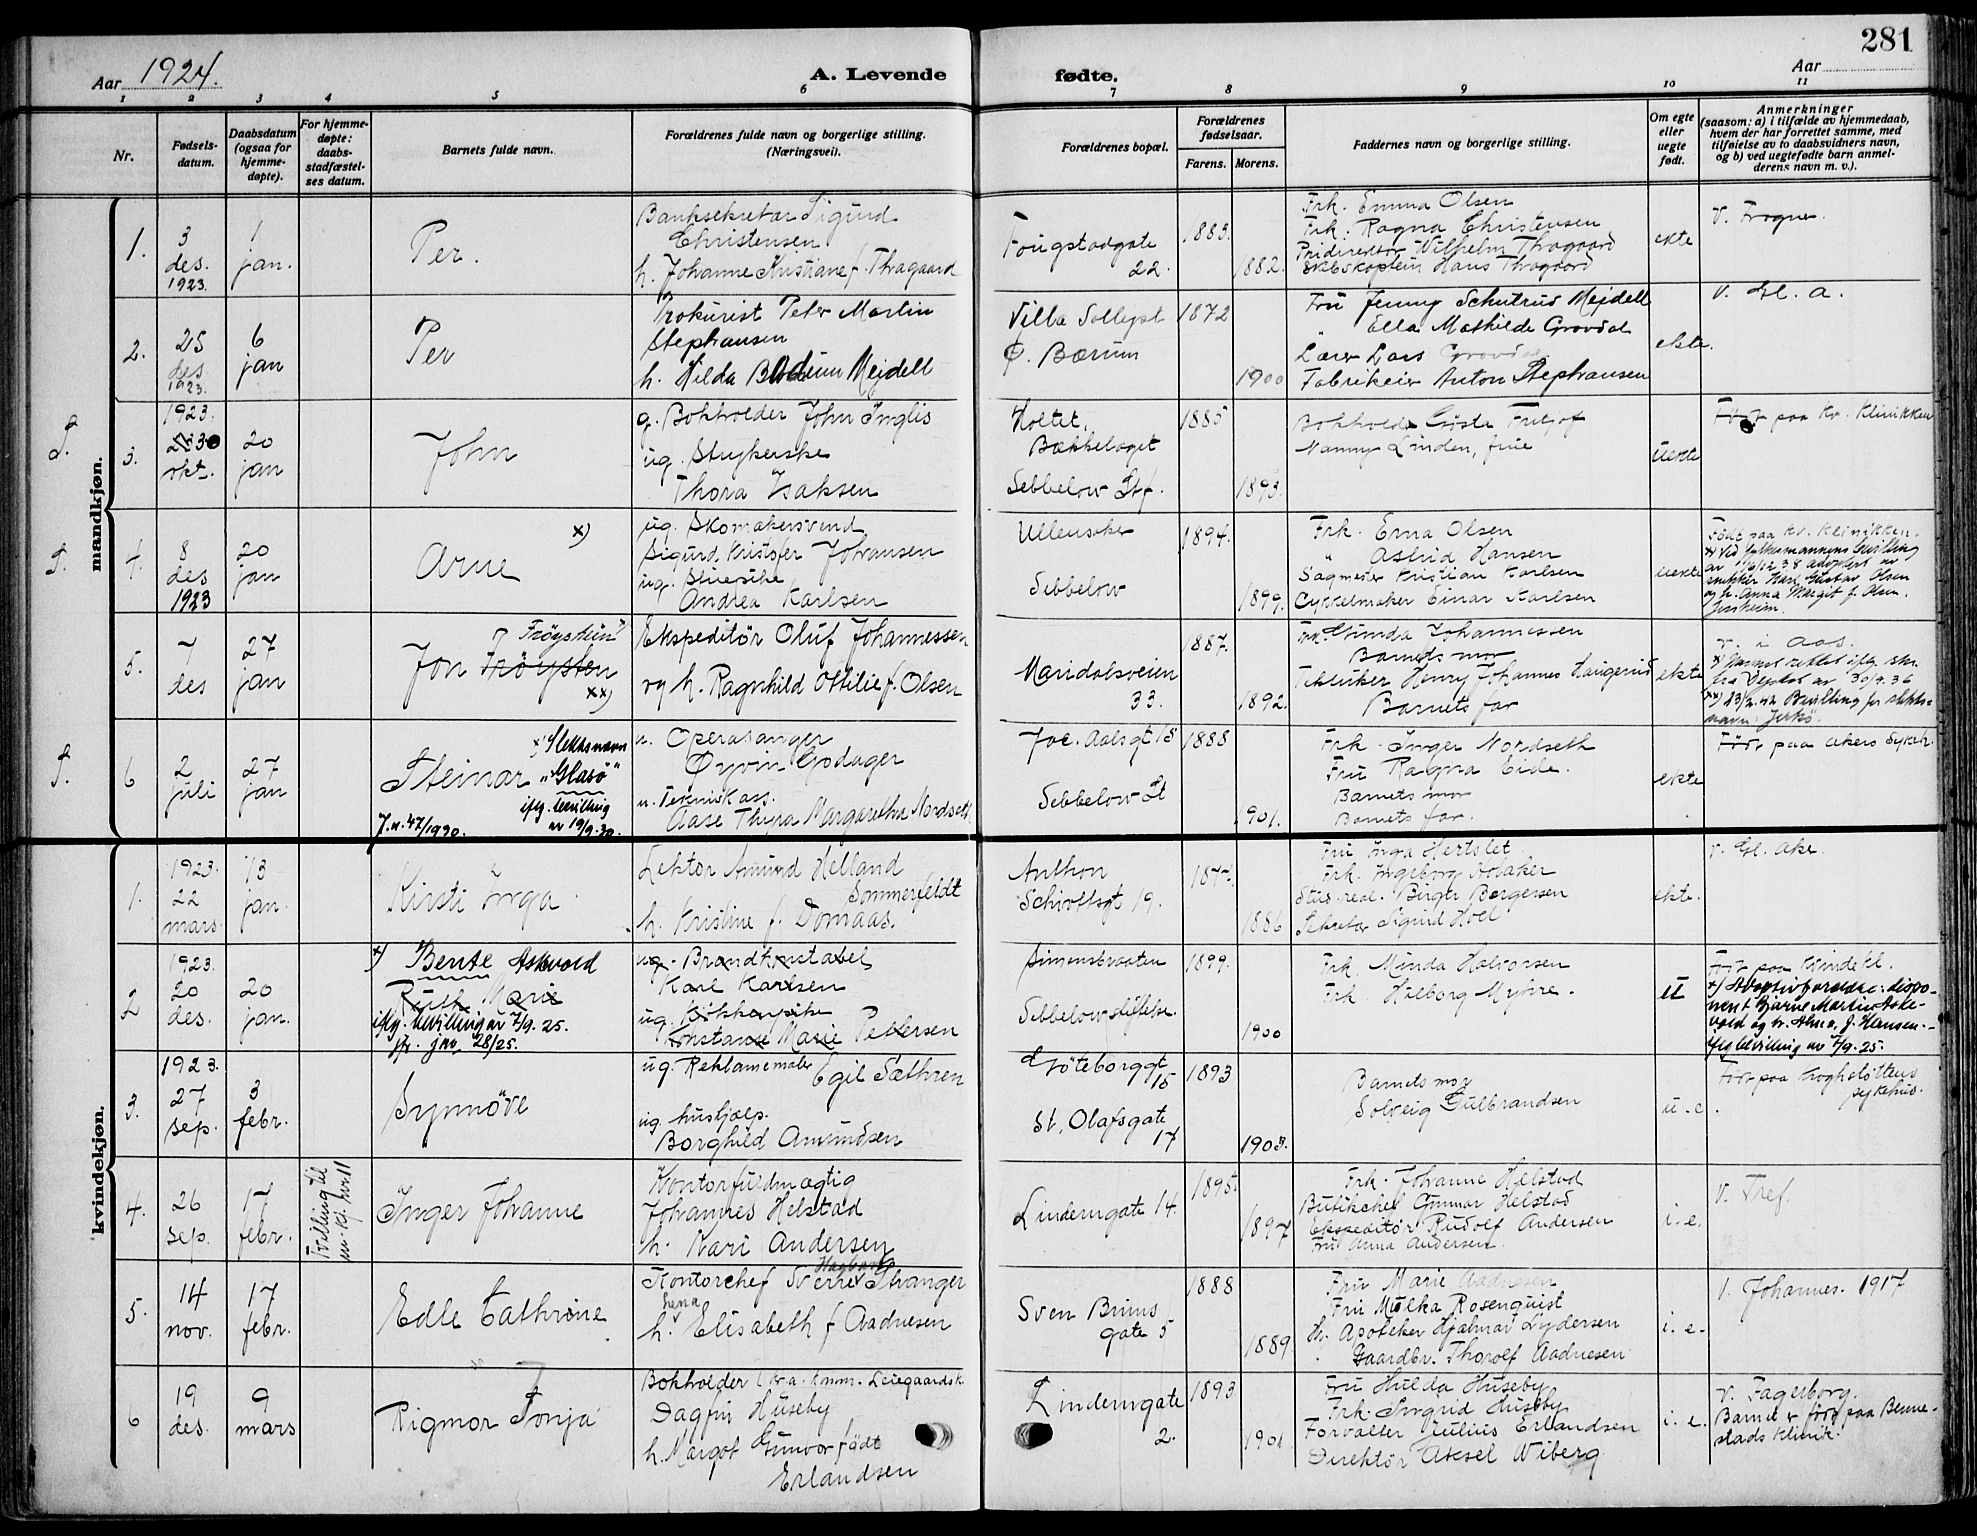 281
Aar 1924.
A. Levende fødte.
Aar
1 2 3 4 5 6 7 8 9 10 11
Nr.
Fødsels-datum.
Daabsdatum (ogsaa for hjemme-døpte).
For hjemme-døpte: daabs-stadfæstel-ses datum.
Barnets fulde navn.
Forældrenes fulde navn og borgerlige stilling. (Næringsvei).
Forældrenes bopæl.
Forældrenes fødselsaar.
Farens. Morens.
Faddernes navn og borgerlige stilling.
Om egte eller uegte født.
Anmerkninger
(saasom: a) i tilfælde av hjemmedaab,
hvem der har forrettet samme, med
tilføielse av to daabsvidners navn,
og b) ved uegtefødte barn anmel-
derens navn m. v.).
mandkjøn.
1. 3 des. 1923. 1 jan. Per.
Banksekretær Sigurd
Christensen
h. Johanne Kristiane f. Thagaard
Fougstadgate 22.
1883. 1882.
Frk. Emma Olsen
Frk. Ragna Christensen
Wilhelm Thagaard
Hans Thagaard
ekte
V. Frogner.
2. 25 des 1923. 6 jan Per
Prokurist Peter Martin
Stephansen
h. Hilda Mejdell
Villa Sollyst
Ø. Bærum
1872 1900
Fru Jenny Mejdell
Ella Mathilde Grovdal
Lærer Lars Grovdal
Fabrikeier Anton Stephansen
ekte.
V. Gl. A.
3. 1923. okt. 20 jan John
g. Bokholder John Inglis
ug. Strykerske
Thora Isaksen
Holtet,
Bækkelaget
Sebbelow Stf.
1885 1893.
Bokholder Gøsta Fritjof
Nanny Linden, frue
uekte
Født paa Kv. Klinikken
4. 8 des 1923 20 jan Arne x)
ug. Skomakersvend
Sigurd Kristofer Johansen
ug.
Andrea Karlsen
Ullensaker
Sebbelow
1894. 1899.
Frk. Erna Olsen
" Astrid Hansen
Sagmester Kristian Karlsen
Cykkelmaker Einar Karlsen
uekte
Født paa Kv. Klinikken.
x) Ved Fylkesmannens bevilling
av 16/12 38 adoptert av
snekker Karl Gustav Olsen
og h. Anna Margit f. Olsen,
Jessheim.
5. 7 des 27 jan Jon Frøysten "Frøystein" xx)
Ekspeditør Oluf Johannessen
og h. Ragnhild Ottilie f. Olsen
Maridalsveien 33.
1887. 1892.
Frk. Gunda Johannessen
Barnets mor
Tekniker Henry Johannes Haugerud
Barnets far
ekte
V. i Aas.
x) Navnet rettet iflg. skr.
fra av 30/4.36
xx) Bevilling for slekts-
navn:
6 2 juli 27 jan Steinar
x) Slektsnavn
"Glasø"
iflg. bevilling
av 19/9.30.
J.n. 47/1930.
u. Operasanger
Øyvin Godager
u. Teknisk ass.
Aase Thyra Margaretha Nordseth
Joc. Aalsgt 15
Sebbelow St
1888 1901.
Frk. Inger Nordseth
Fru Ragna Eide.
Barnets mor
Barnets far.
ekte
Født paa Akers Sykeh.
kvindekjøn.
1. 1923. 22 mars. 13 jan. Kirsti Inga
Lektor Amund Helland
Sommerfeldt
h. Kristine f. Domaas.
Anthon
Schiøttsgt 19.
1877. 1886
Fru Inga Hertslet
Frk. Ingeborg Aslaker
Stud. real. Birger Bergersen
Sekretær Sigurd Hoel
ekte.
V. Gl. Ake.
2 1923. 20 des. 20 jan.
x) Bente Askvold
Ruth Marie
iflg. bevilling av 7/9.25.
jfr. jnr. 28/25.
ug. Brandkonstabel
Karl Karlsen
ug. Kokkepike
Konstanse Marie Pettersen
Simensbraaten
Sebbelowstiftelse.
1899. 1900
Frk. Minda Halvorsen
Frk. Halborg Myhre.
U
Født paa Kvindekl.
x) Adoptivforældre: dispo-
nent Bjarne Martin Ask-
vold og h. Alma, f. Hansen.-
iflg bevilling av 7/9.25.
3. 1923. 27 sep. 3 febr. Synnöve
ug. Reklamemaler
Egil Sæthren
ug. hushjælp.
Borghild Amundsen
Göteborggt 15
St. Olafsgate 17
1893 1903.
Barnets mor
Solveig Gulbrandsen
u.e.
Født paa Krogstøttens
sykehus.
4. 26 sep. 17 febr.
Tvilling til
m. kj. nr. 11
Inger Johanne
Kontorfuldmægtig
Johannes Helstad
h. Kari Andersen
Linderngate 14.
1895. 1897
Frk. Johanne Helstad
Butikchef Gunnar Helstad
Ekspeditör Rudolf Andersen
Fru Anna Andersen.
i. e.
V. Tref.
5. 14 nov. 17 febr. Edle Cathrine
Kontorchef Sverre Hagbart Stranger
h. Elisabeth f Aadnesen
Sven Bruns
gate 5
1888 1889.
Fru Marie Aadnesen
Fru Milka Rosenquist
Hr. Apoteker Hjalmar Lydersen
Gaardbr. Thorolf Aadnesen
i. e.
V. Johannes. 1917
6 19 des. 9 mars Rigmor Tonja
Bokholder Kr.a. komm. Leiegaardsk.
Dagfin Huseby
h. Margot Gunvor født
Erlandsen
Linderngate 2.
1893 1901
Fru Hulda Huseby
Frk. Ingrid Huseby
Forvalter Julius Erlandsen
Direktör Aksel Wiberg
i. e.
V. Fagerborg.
Barnet er født paa Benne-
stads klinik.